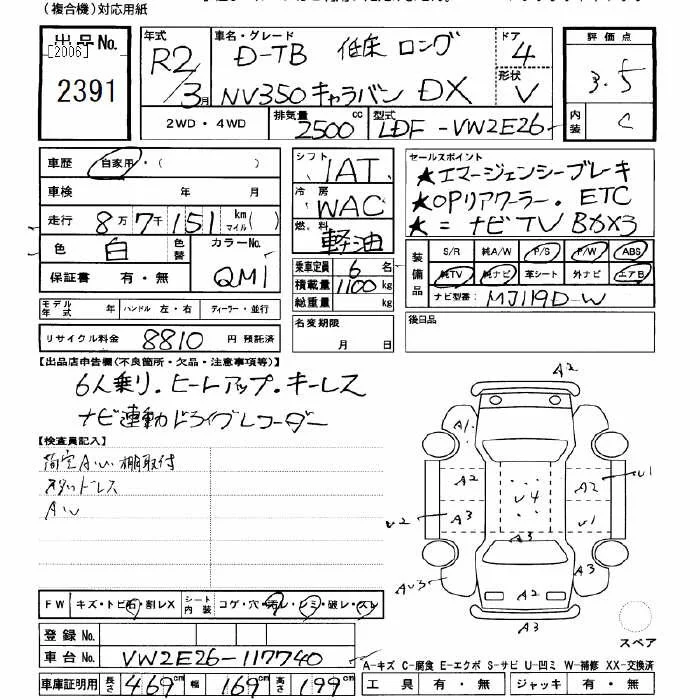 (複合機)対応用紙
出品No. [2006] 2391
年式 R2/3月
車名・グレード D-TB 低床 ロング
NV350キャラバン DX
ドア 4
形状 V
評価点 3.5
内装 C
2WD・4WD 排気量 2500cc 型式 LDF-VW2E26
車歴 自家用・( )
車検 年 月
走行 8万7千151 km マイル( )
色 白 色替 カラーNo. QM1
保証書 有・無
シフト IAT
冷房 WAC
燃料 軽油
乗車定員 6名
積載量 1100kg
総重量 kg
セールスポイント
★エマージェンシーブレーキ
★OPリアクーラー・ETC
★=ナビTV Bカメ×3
装備品 S/R 純A/W P/S P/W ABS
純TV 純ナビ 革シート 外ナビ エアB
ナビ型番: MJ119D-W
モデル年式 年 ハンドル 左・右 ディーラー・並行
名変期限 月 日
後日品
リサイクル料金 8810 円 預託済
【出品店申告欄(不良箇所・欠品・注意事項等)】
6人乗り・ヒートアップ・キーレス
ナビ連動ドライブレコーダー
【検査員記入】
棚取付
Aw
A2
A1
A2 A2 U1
U4
U2 A3 U1
AU3 A3
A2
A3
FW キズ・トビ石・割レX シート内装 コゲ・穴・汚レ・シミ・破レ・スレ
スペア
登録No.
車台No. VW2E26-117740
A-キズ C-腐食 E-エクボ S-サビ U-凹ミ W-補修 XX-交換済
車庫証明用 長さ 469cm 幅 169cm 高さ 199cm 工具 有・無 ジャッキ 有・無